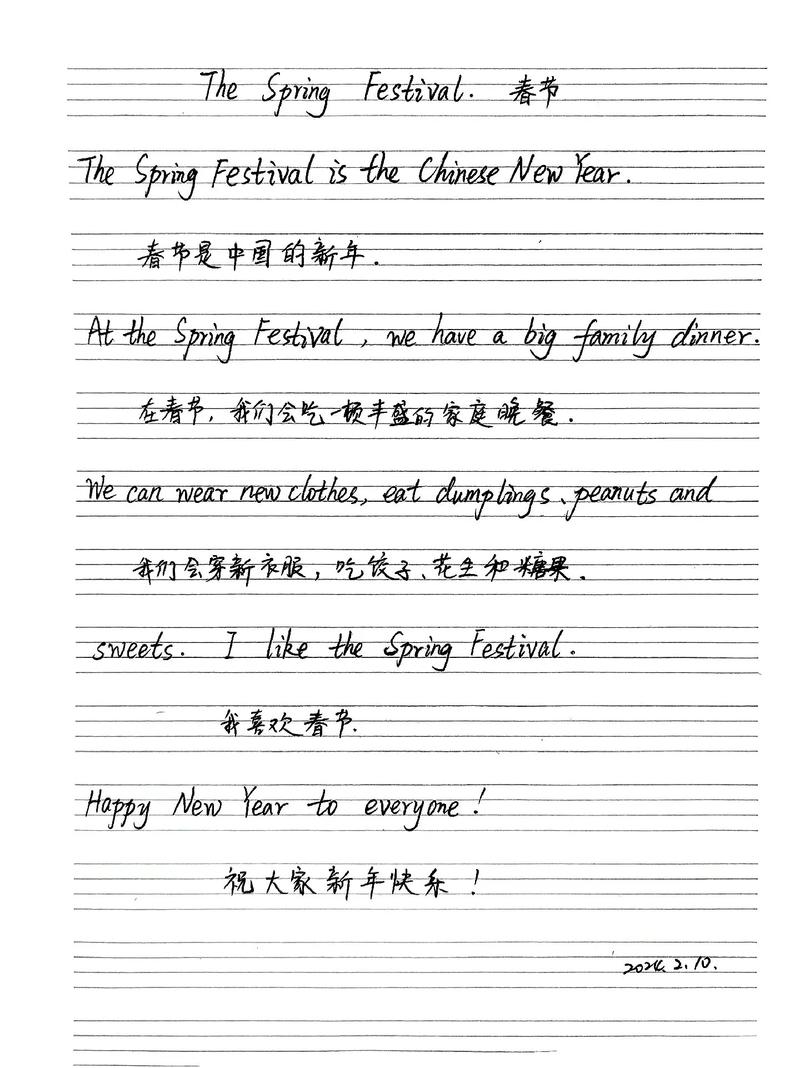 The Spring Festival. 春节
The Spring Festival is the Chinese New Year.
春节是中国的新年.
At the Spring Festival, we have a big family dinner.
在春节,我们会吃一顿丰盛的家庭晚餐.
We can wear new clothes, eat dumplings、peanuts and
我们会穿新衣服,吃饺子、花生和糖果.
sweets. I like the Spring Festival.
我喜欢春节.
Happy New Year to everyone!
祝大家新年快乐!
2024.2.10.